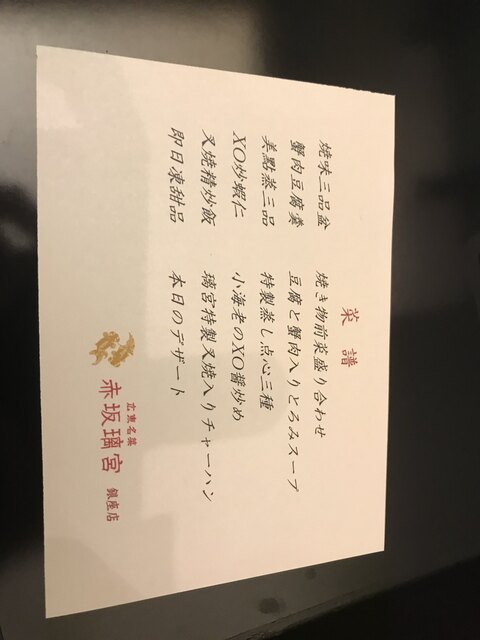 菜譜
燒味三品盆 焼き物前菜盛り合わせ
蟹肉豆腐羹 豆腐と蟹肉入りとろみスープ
美點蒸三品 特製蒸し点心三種
XO炒蝦仁 小海老のXO醤炒め
叉焼精炒飯 璃宮特製叉焼入りチャーハン
即日凍甜品 本日のデザート
広東名菜
赤坂璃宮 銀座店